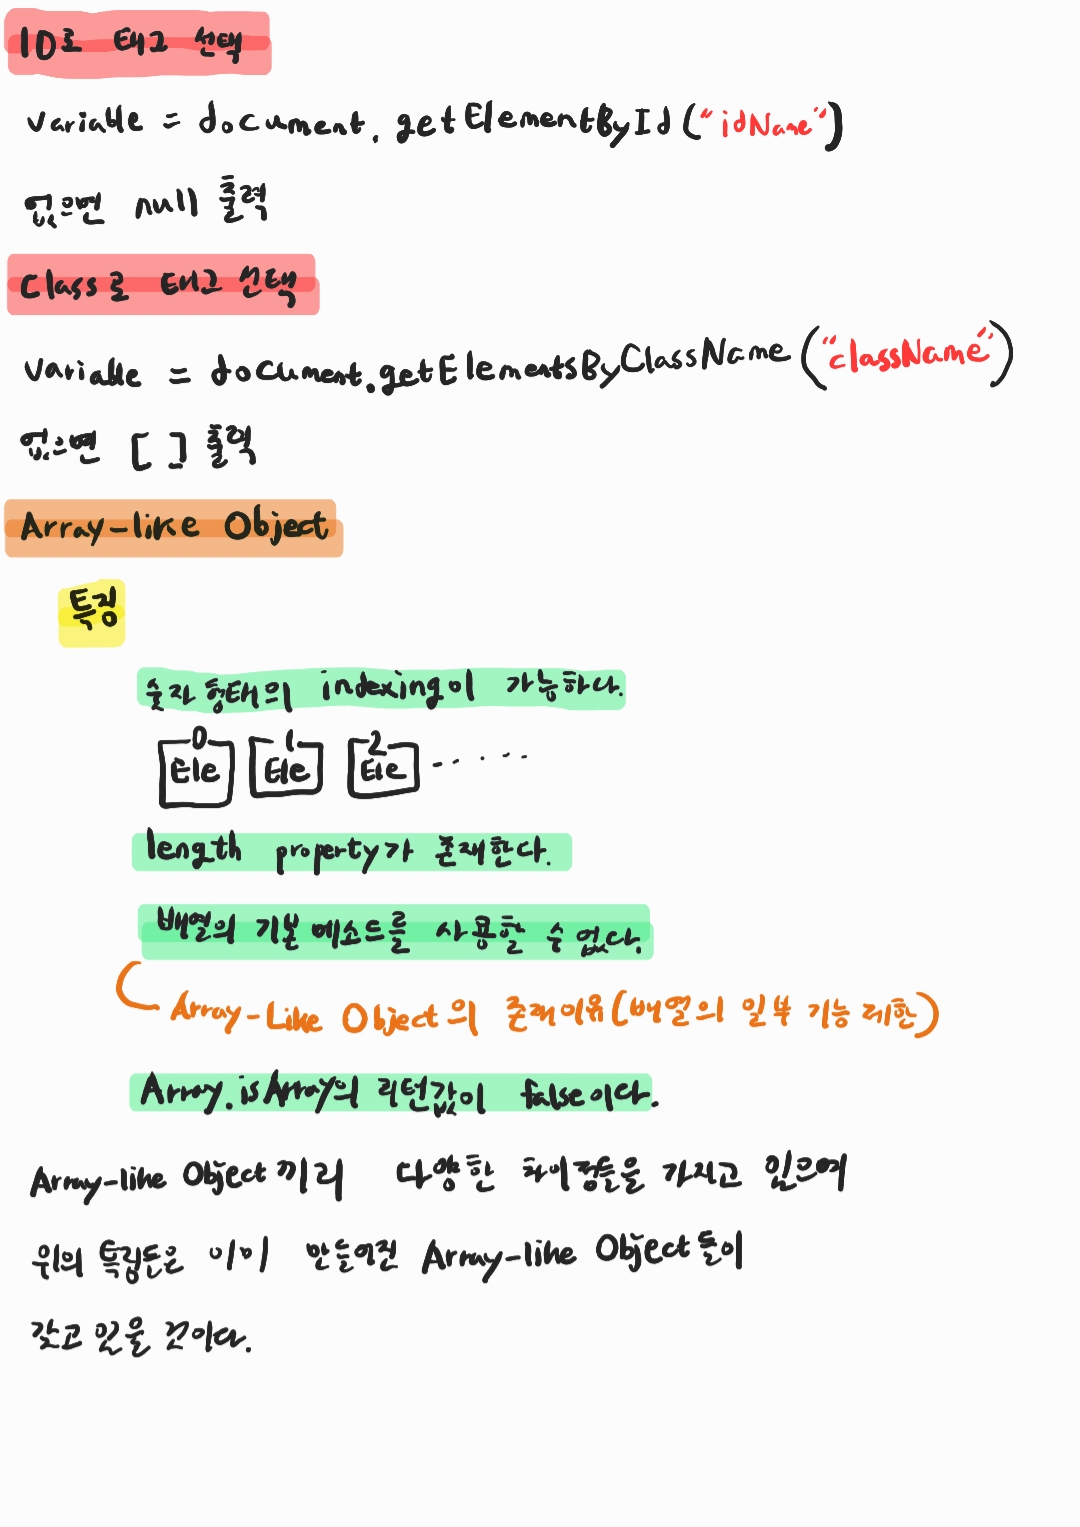 ID로 태그 선택
variable = document.getElementById("idName")
없으면 null 출력
Class로 태그 선택
variable = document.getElementsByClassName("className")
없으면 [ ] 출력
Array-like Object
특징
숫자 형태의 indexing이 가능하다.
0 1 2
Ele Ele Ele ......
length property가 존재한다.
배열의 기본 메소드를 사용할 수 없다.
Array-Like Object의 존재이유(배열의 일부 기능 제한)
Array.isArray의 리턴값이 false이다.
Array-like Object끼리 다양한 차이점들을 가지고 있으며
위의 특징들은 이미 만들어진 Array-like Object들이
갖고 있을 것이다.